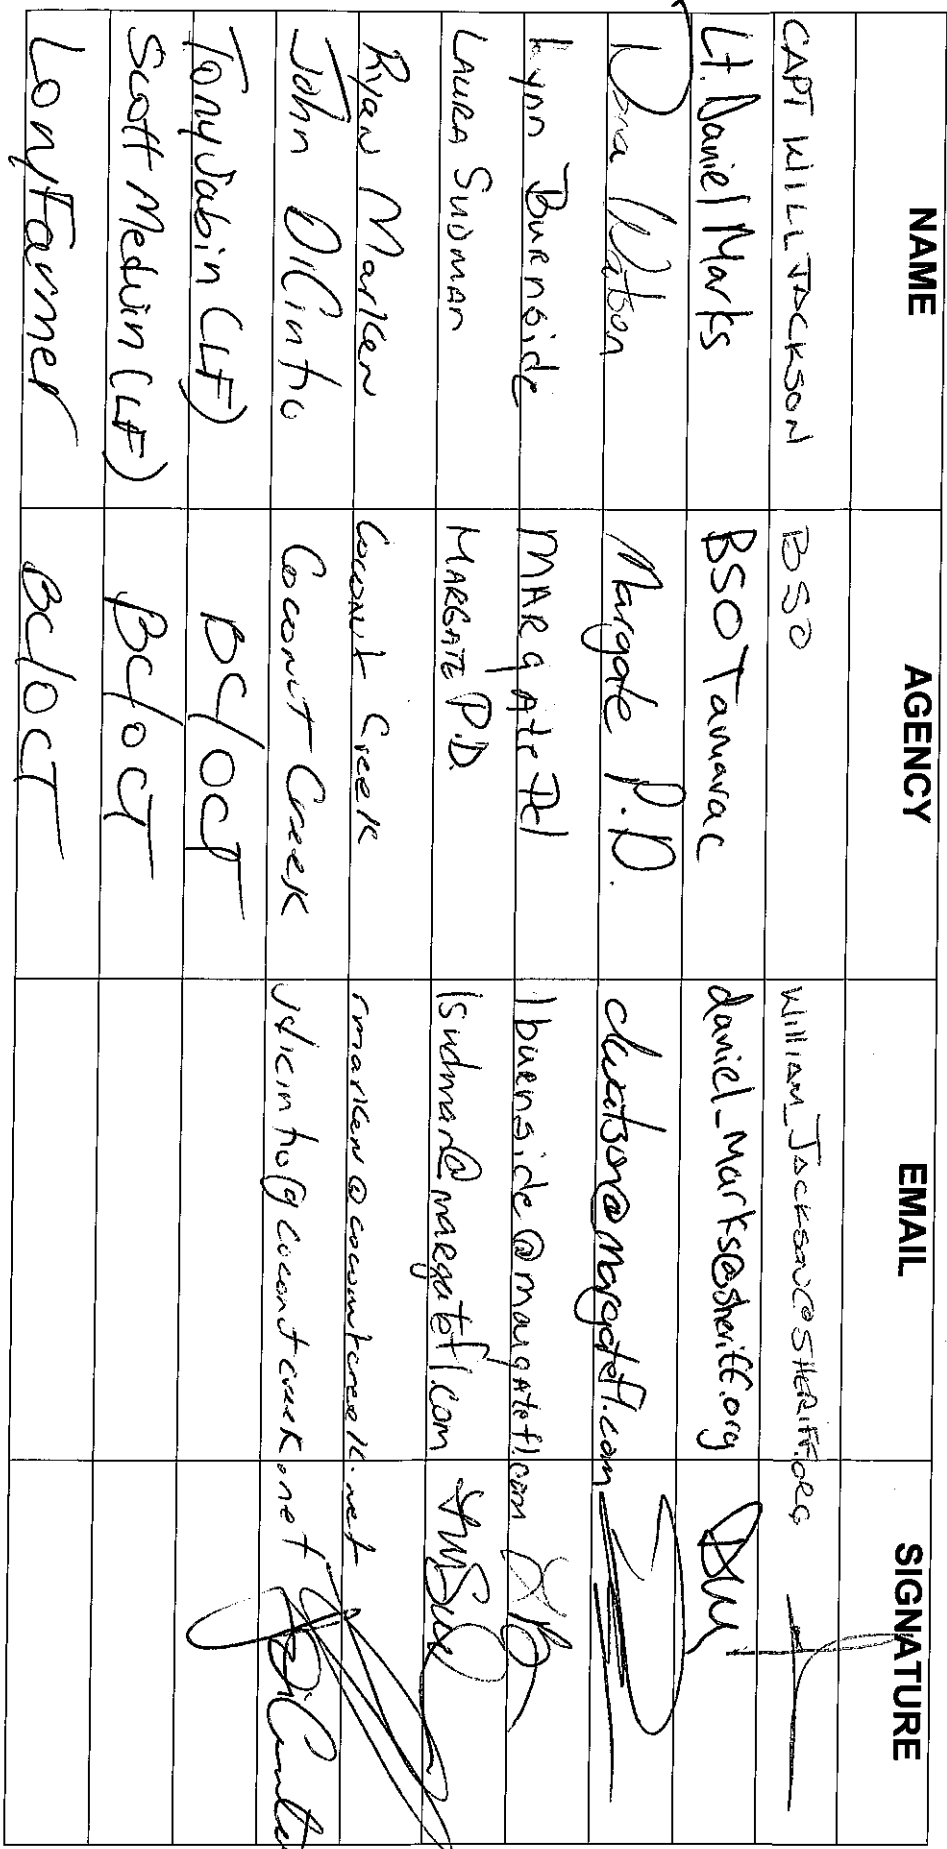 NAME AGENCY EMAIL SIGNATURE
CAPT WILL JACKSON BSO William_Jackson@SHERIFF.ORG
Lt. Daniel Marks BSO Tamarac daniel_Marks@sheriff.org
Dana Watson Margate P.D. dwatson@margatefl.com
Lynn Burnside MARgAte Pd lburnside@margatefl.com
LAURA SUDMAN MARGATE P.D. lsudman@margatefl.com
Ryan Marken Coconut Creek rmarken@coconutcreek.net
John DiCintio Coconut Creek jdicintio@coconutcreek.net
Tony Jabin (LF) BC/OCT
Scott Medvin (LF) BC/OCT
Lony Farmer BC/OCT